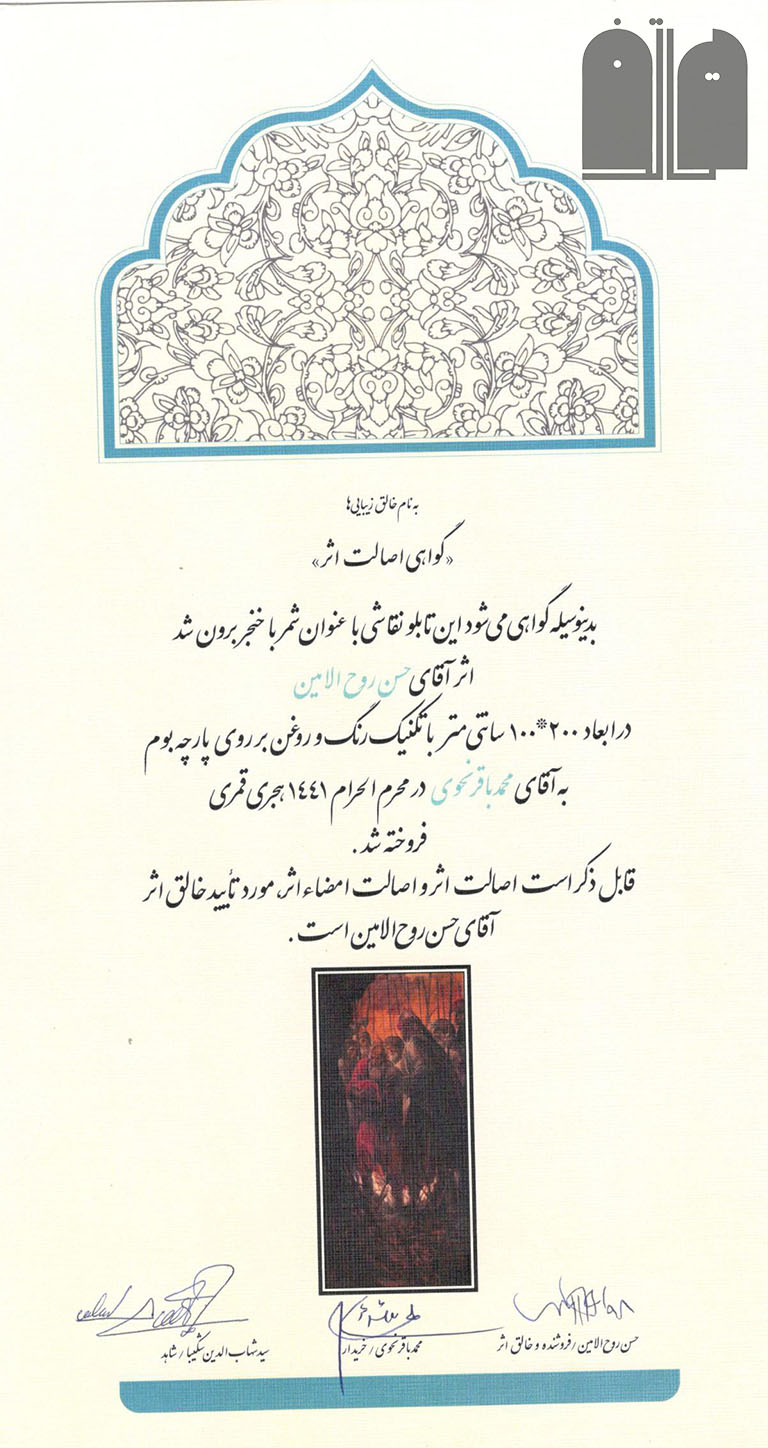 هاتف
به نام خالق زیبایی‌ها
«گواهی اصالت اثر»
بدینوسیله گواهی می‌شود این تابلو نقاشی با عنوان شمر با خنجر برون شد
اثر آقای حسن روح الامین
در ابعاد ۲۰۰*۱۰۰ سانتی متر با تکنیک رنگ و روغن بر روی پارچه بوم
به آقای محمدباقر نحوی در محرم الحرام ۱۴۴۱ هجری قمری
فروخته شد.
قابل ذکر است اصالت اثر و اصالت امضاء اثر، مورد تأیید خالق اثر
آقای حسن روح الامین است.
حسن روح الامین / فروشنده و خالق اثر
محمدباقر نحوی / خریدار
سید شهاب الدین شکیبا / شاهد